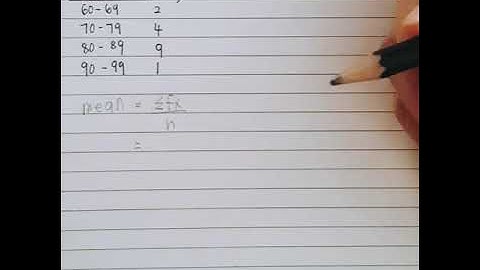 60-69 2
70-79 4
80-89 9
90-99 1
mean = Σfx
n
=